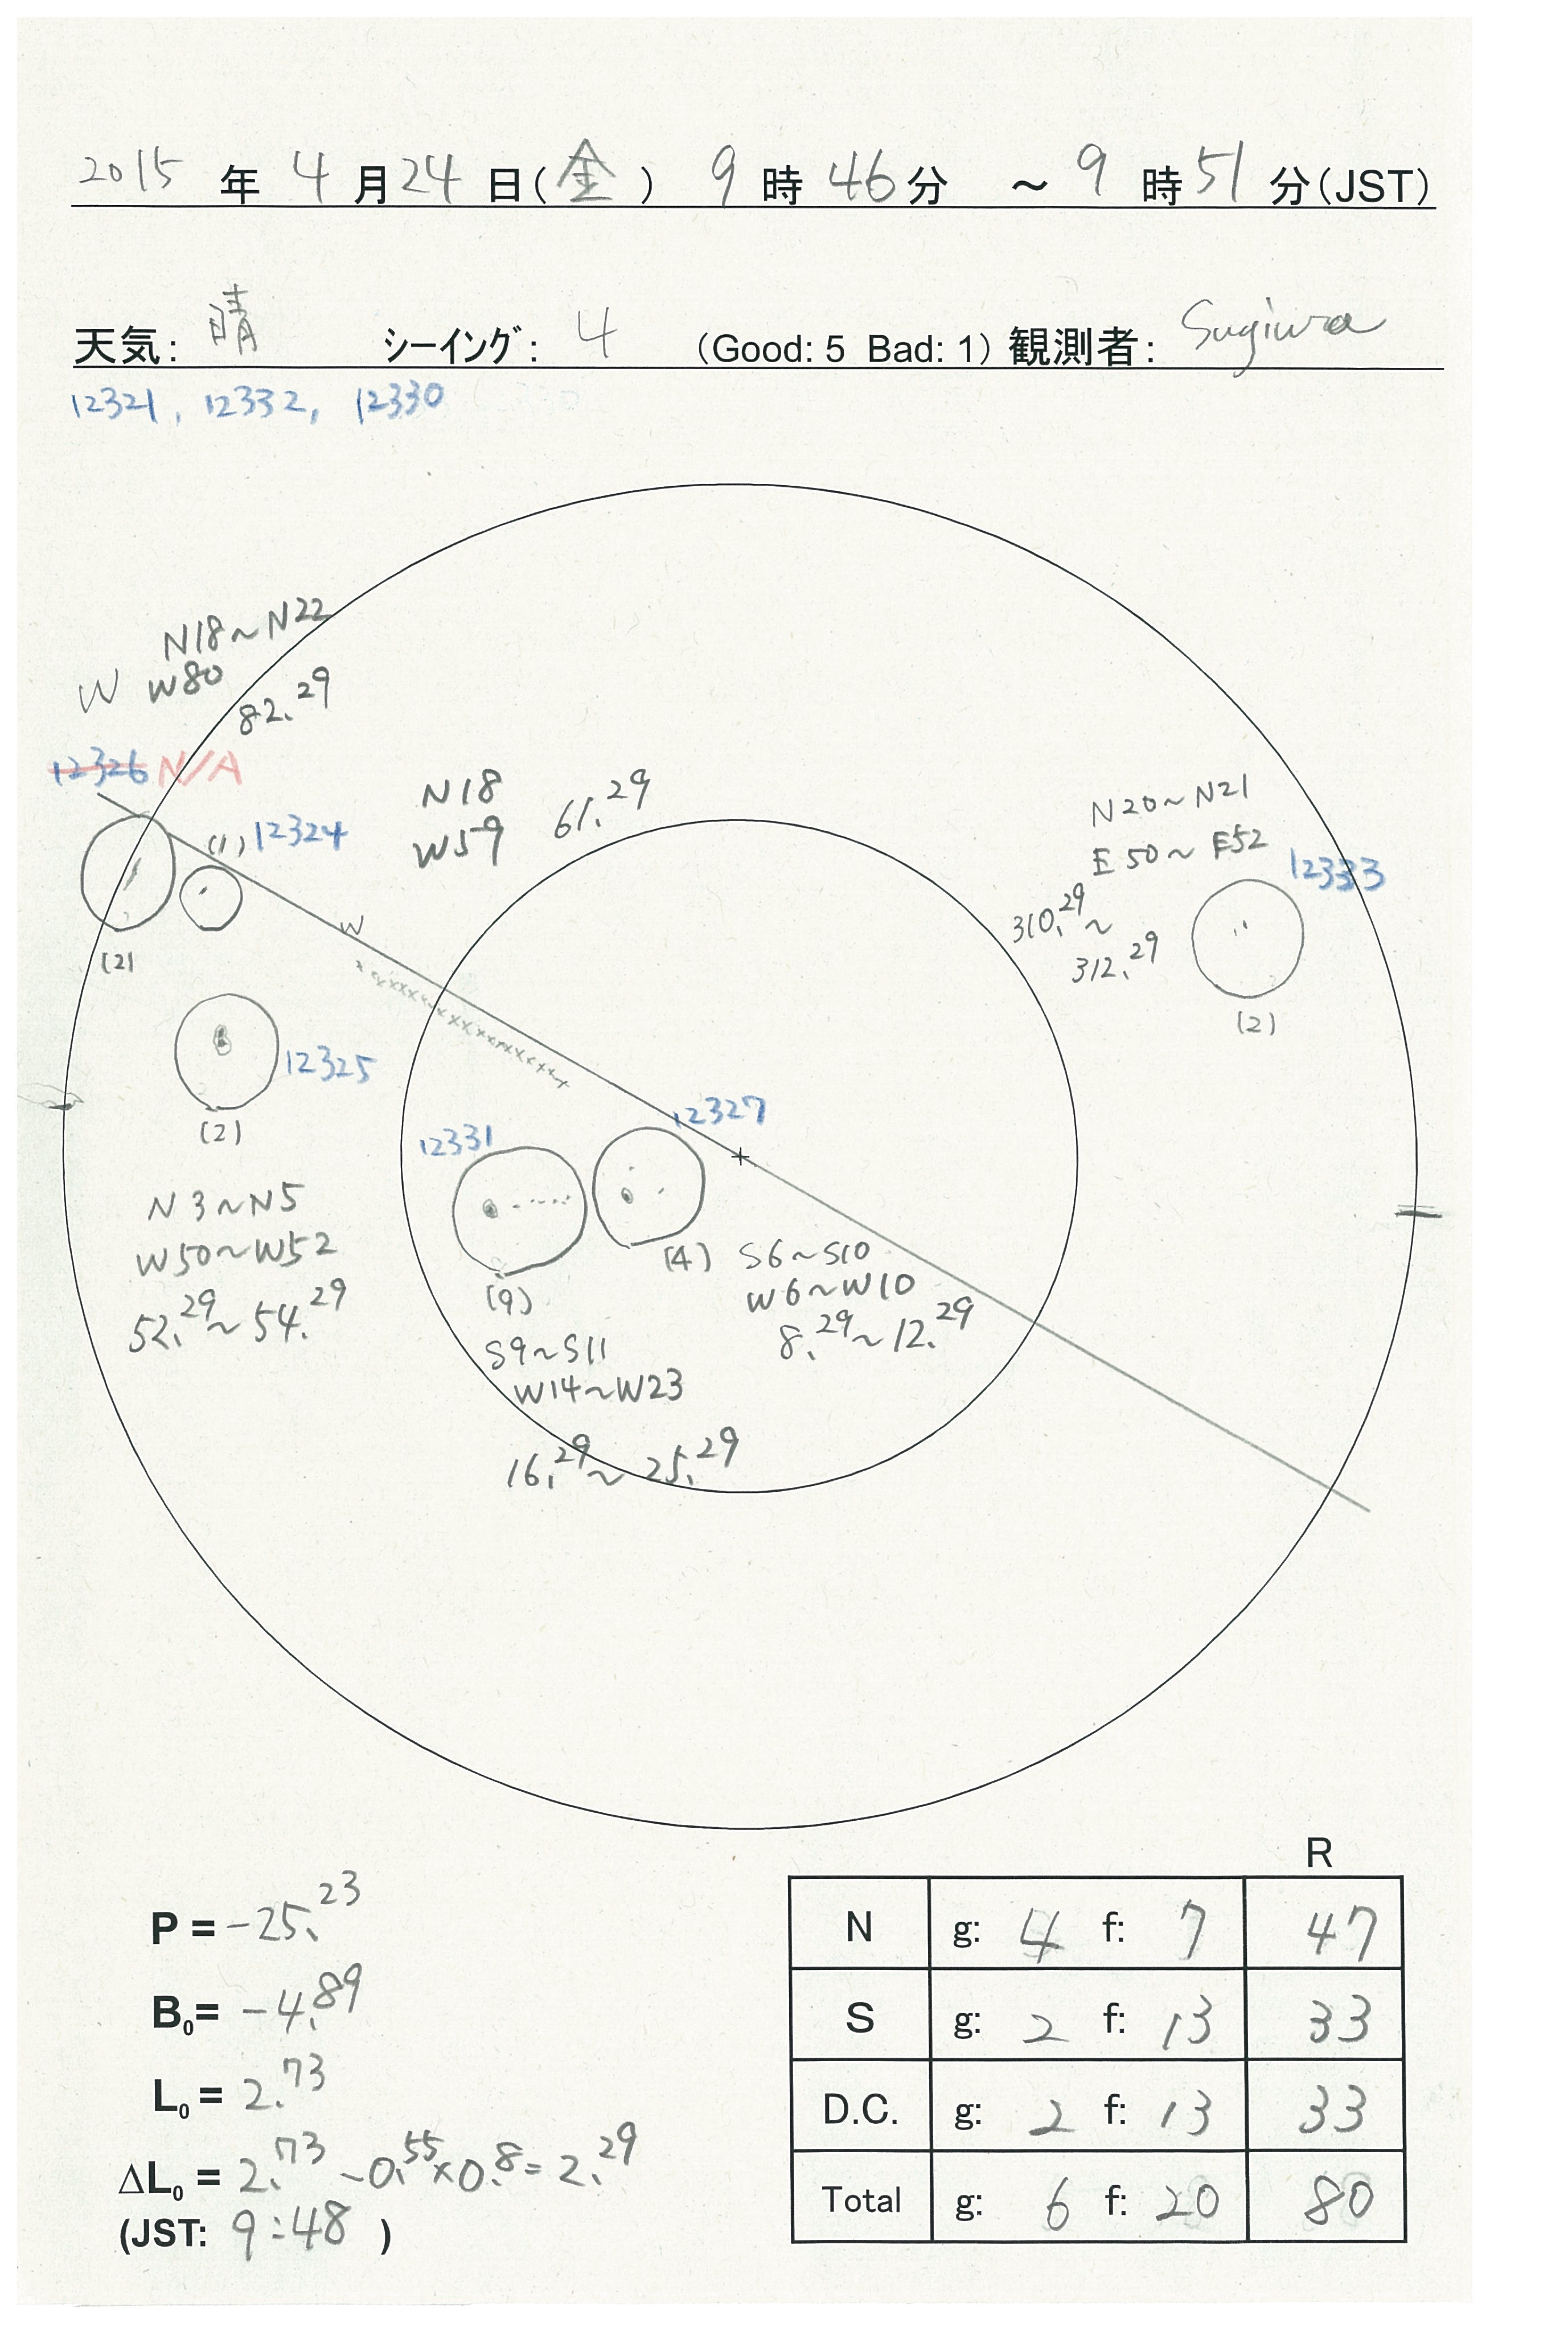 2015 年 4 月 24 日(金) 9 時 46 分 ~ 9 時 51 分(JST)
天気: 晴 シーイング: 4 (Good: 5 Bad: 1) 観測者: Sugiura
12321, 12332, 12330
N18~N22
W W80
82.29
12326 N/A
(1) 12324
N18
W59
61.29
N20~N21
E50~E52
12333
310.29~
312.29
(2)
(2)
W
12325
(2)
N3~N5
W50~W52
52.29~54.29
12327
12331
(4) S6~S10
W6~W10
8.29~12.29
(9)
S9~S11
W14~W23
16.29~25.29
R
N g: 4 f: 7 47
S g: 2 f: 13 33
D.C. g: 2 f: 13 33
Total g: 6 f: 20 80
P = -25.23
B0= -4.89
L0 = 2.73
ΔL0 = 2.73 -0.55×0.8= 2.29
(JST: 9:48 )